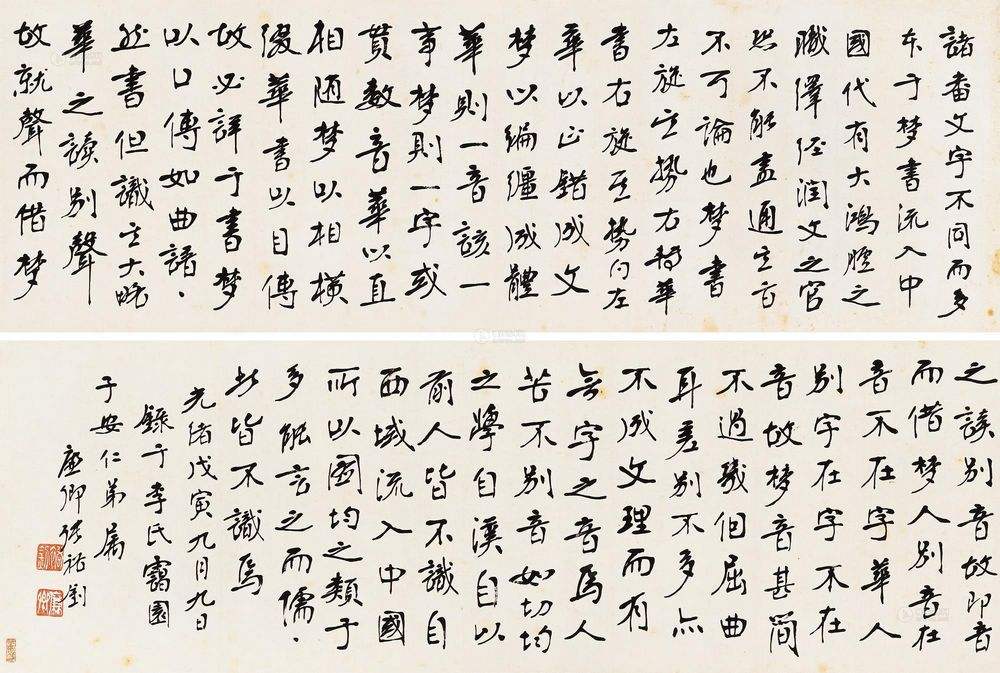 諸番文字不同而多
本于梦書流入中
國代有大鴻臚之
職譯經潤文之官
然不能盡通其旨
不可論也梦書
左旋其勢右轉華
書右旋其勢向左
華以正錯成文
梦以編纏成體
華則一音該一
字梦則一字或
貫數音華以直
相随梦以相横
綴華書以目傳
故必詳于書梦
以口傳如曲譜、
然書但識其大略
華之讀別聲
故就聲而借梦
之讀別音故即音
而借梦人別音在
音不在字華人
別字在字不在
音故梦音甚簡
不過幾個屈曲
耳差別不多亦
不成文理而有
無字之音焉人
苦不別音如切均
之學自漢自以
前人皆不識自
西域流入中國
所以圖均之類于
多能言之而儒、
此皆不識焉
光緒戊寅九月九日
錄于李氏靄園
于安仁弟属
廉卿張裕釗